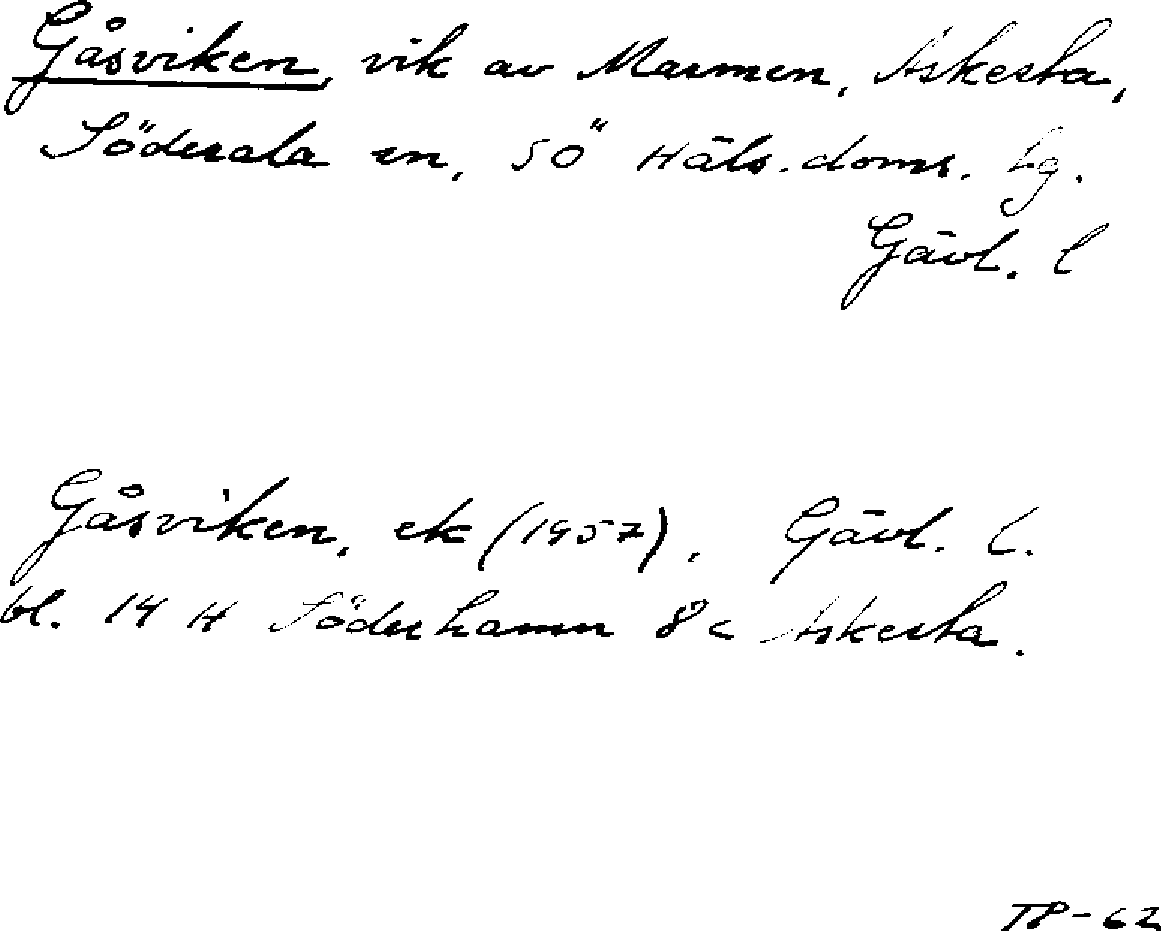 Gåsviken, vik av Marmen, Askesta,
Söderala sn, SÖ Häls. doms. lg.
Gävl. l
Gåsviken, ek (1957). Gävl. l.
bl. 14 H Söderhamn 8c Askesta.
TP-62